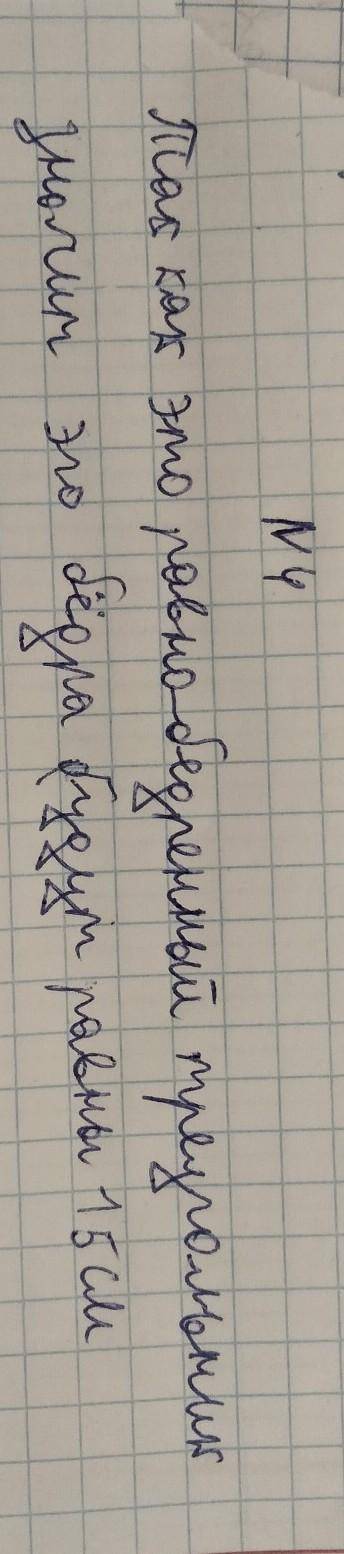 N4
Так как это равнобедренный треугольник
значит эго бёдра будут равны 15 см